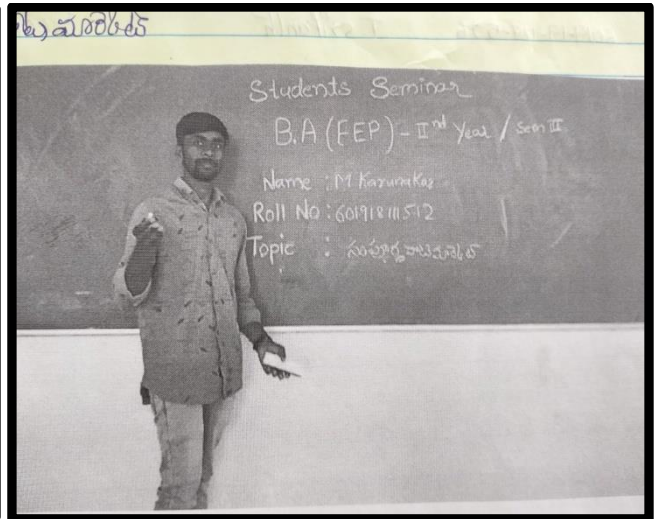 మార్కెట్
Students Seminar
B.A (EEP) - II nd Year / Sem III
Name : M Karunakar
Roll No : 601918111512
Topic : సంపూర్ణ పోటి మార్కెట్